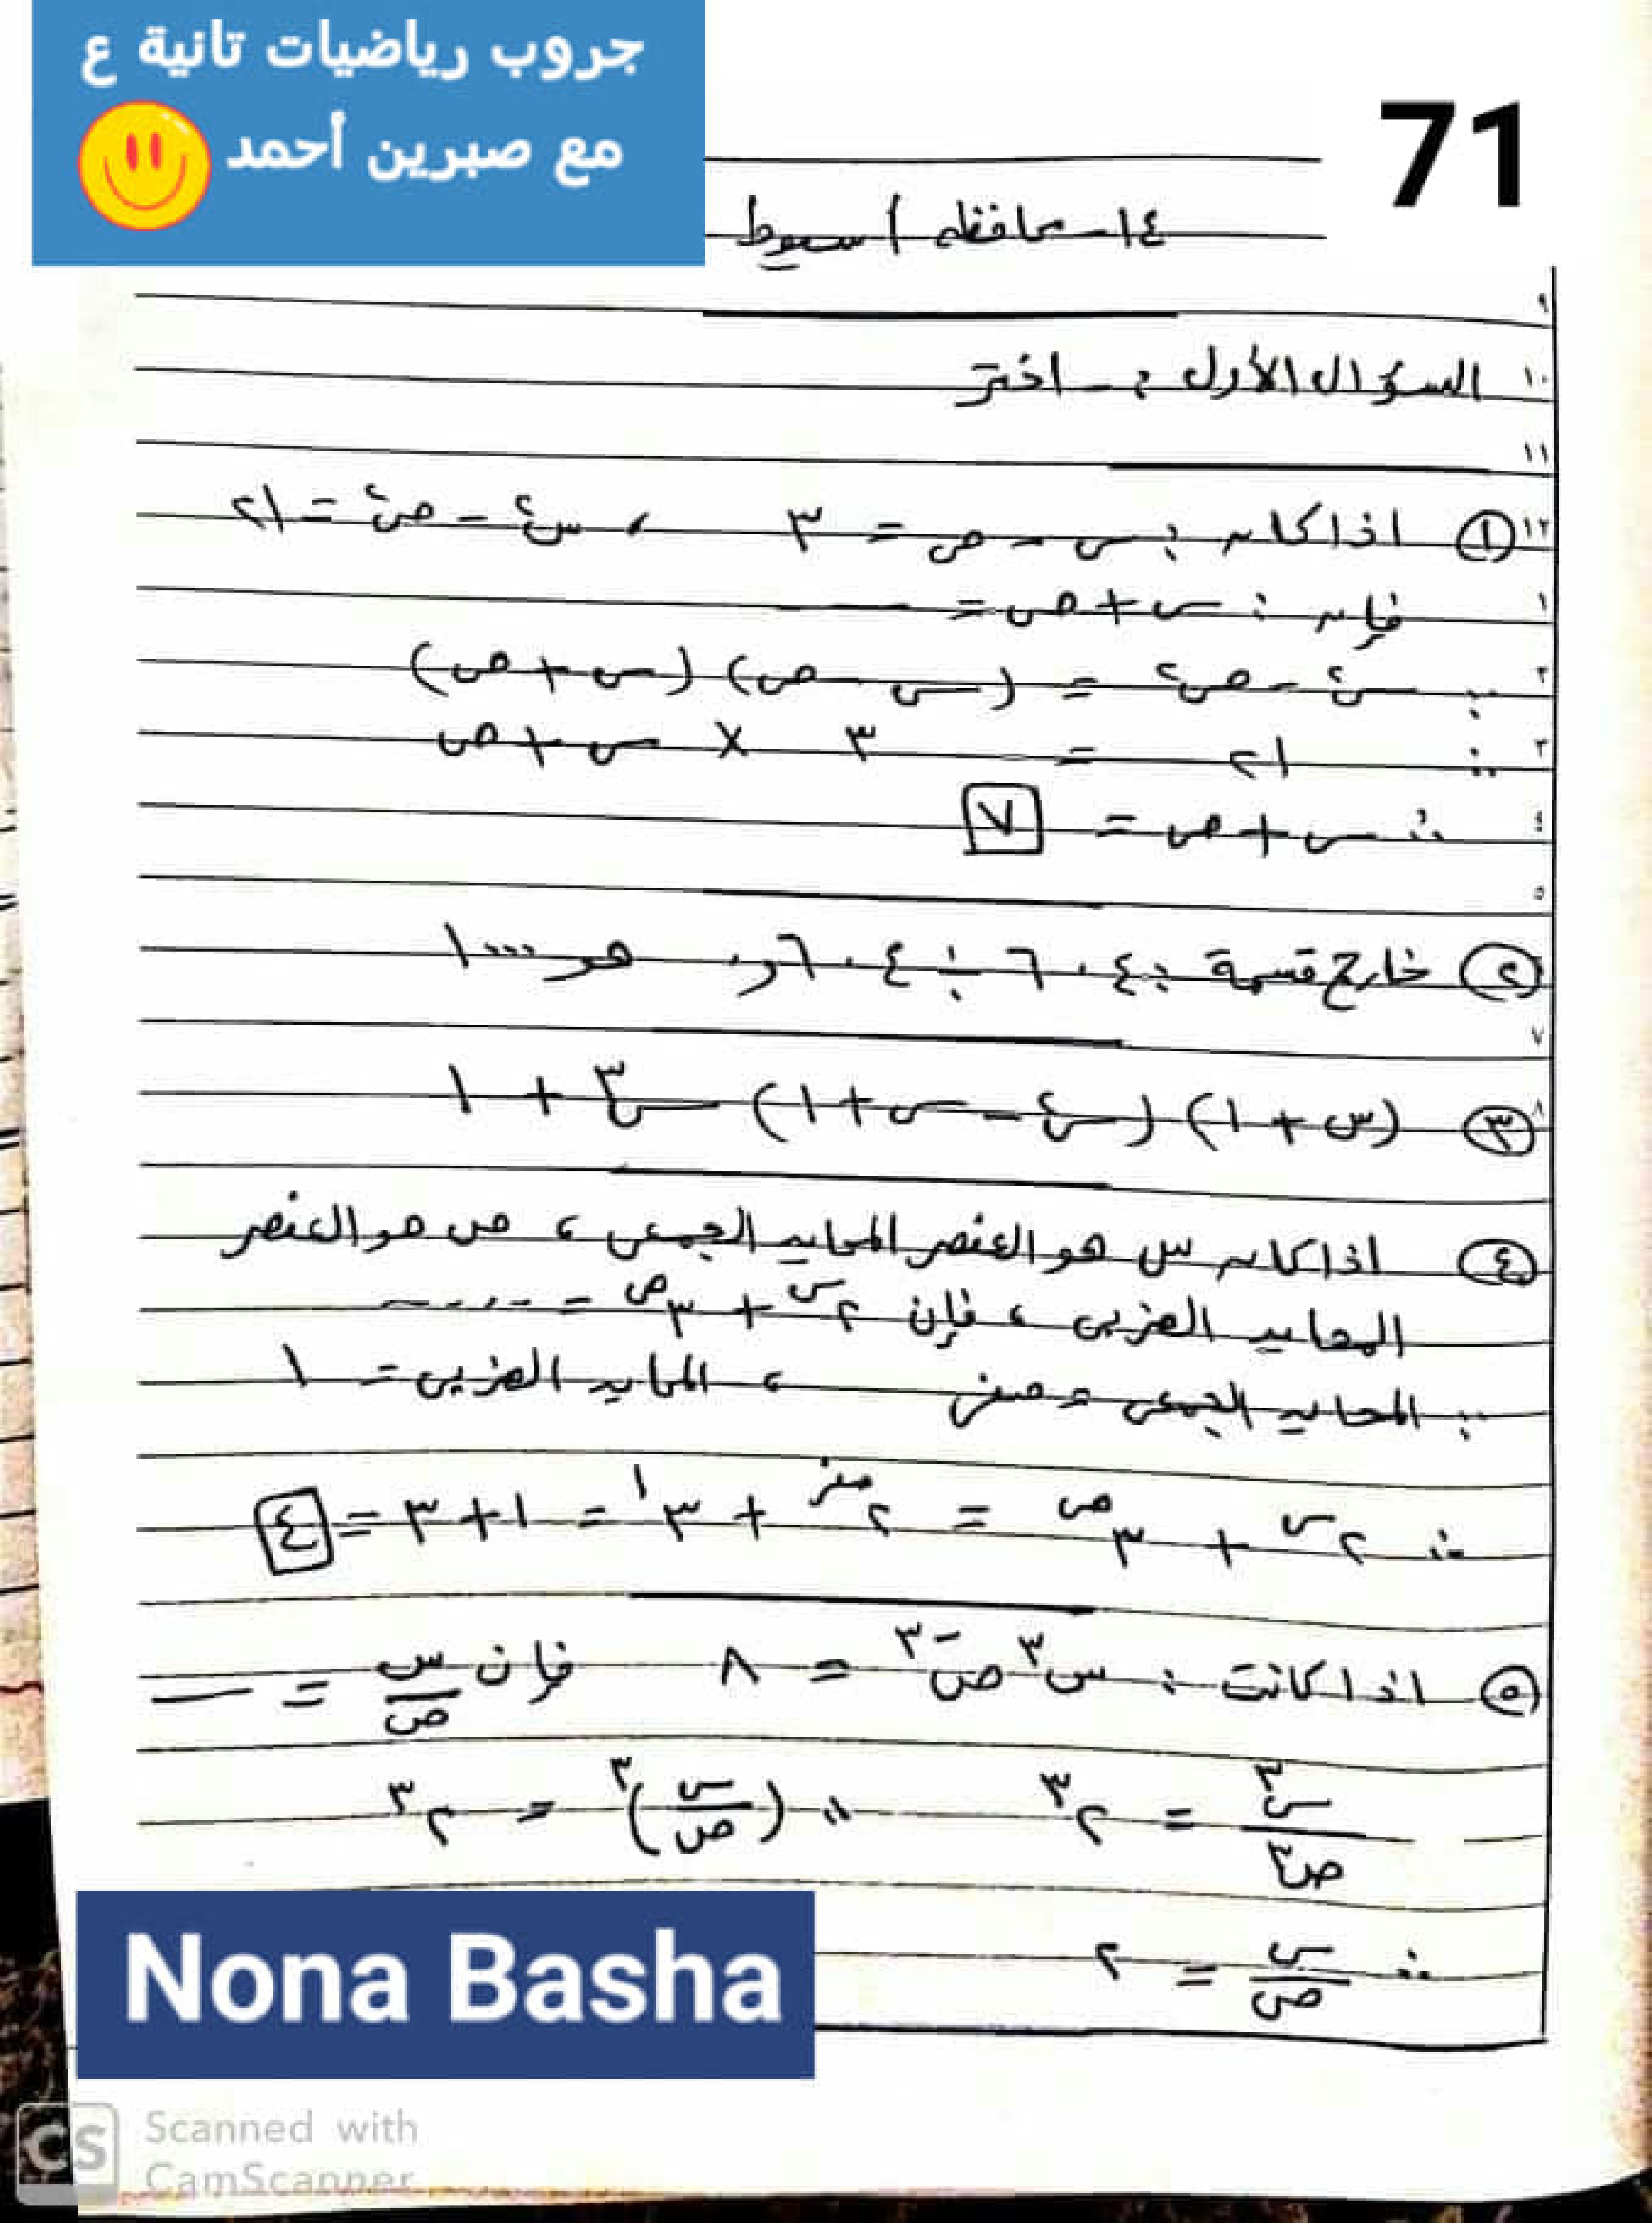 جروب رياضيات تانية ع
مع صبرين أحمد
71
١٤- محافظه اسيوط
٩
١٠ السؤال الأول :- اختر
١١
١٢ ① اذا كان : س - ص = ٣ ، س٢ - ص٢ = ٢١
١ فإن : س + ص = ــــ
٢ ∵ س٢ - ص٢ = (س - ص) (س + ص)
٣ ∴ ٢١ = ٣ × س + ص
٤ ∴ س + ص = ٧
٥
② خارج قسمة : ٤٠٦ ÷
٧
٨ ③ (س + ١) (س٢ - س + ١) س٣ + ١
④ اذا كان س هو العنصر المحايد الجمعى ، ص هو العنصر
المحايد الضربى ، فإن ٢س + ٣ص = .....
∵ المحايد الجمعى = صفر ، المحايد الضربى = ١
∴ ٢س + ٣ص = ٢صفر + ٣١ = ١ + ٣ = ٤
⑤ اذا كانت : س٣ ص-٣ = ٨ فإن س/ص = ــــ
س٣/ص٣ = ٢٣ ∴ (س/ص)٣ = ٢٣
∴ س/ص = ٢
Nona Basha
CS
Scanned with
CamScanner